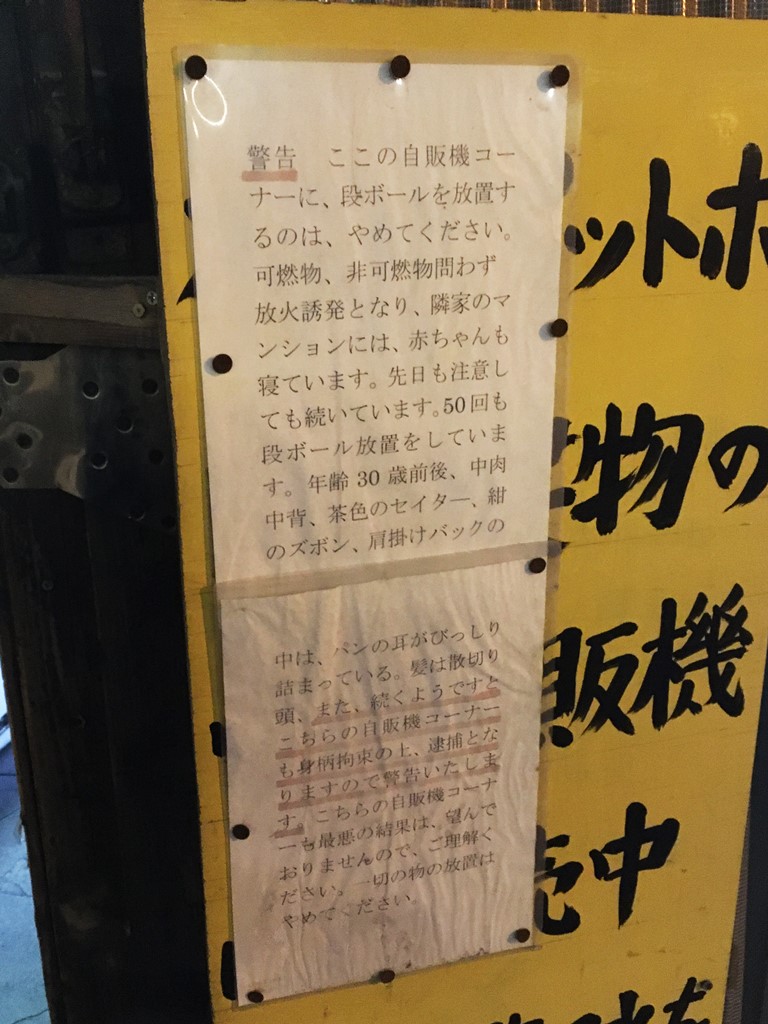 警告　ここの自販機コー
ナーに、段ボールを放置す
るのは、やめてください。
可燃物、非可燃物問わず
放火誘発となり、隣家のマ
ンションには、赤ちゃんも
寝ています。先日も注意し
ても続いています。50回も
段ボール放置をしていま
す。年齢 30 歳前後、中肉
中背、茶色のセイター、紺
のズボン、肩掛けバックの
中は、パンの耳がびっしり
詰まっている。髪は散切り
頭、また、続くようですと
こちらの自販機コーナー
も身柄拘束の上、逮捕とな
りますので警告いたしま
す。こちらの自販機コーナ
ーも最悪の結果は、望んで
おりませんので、ご理解く
ださい。一切の物の放置は
やめてください.
ットホ
物の
販機
売中